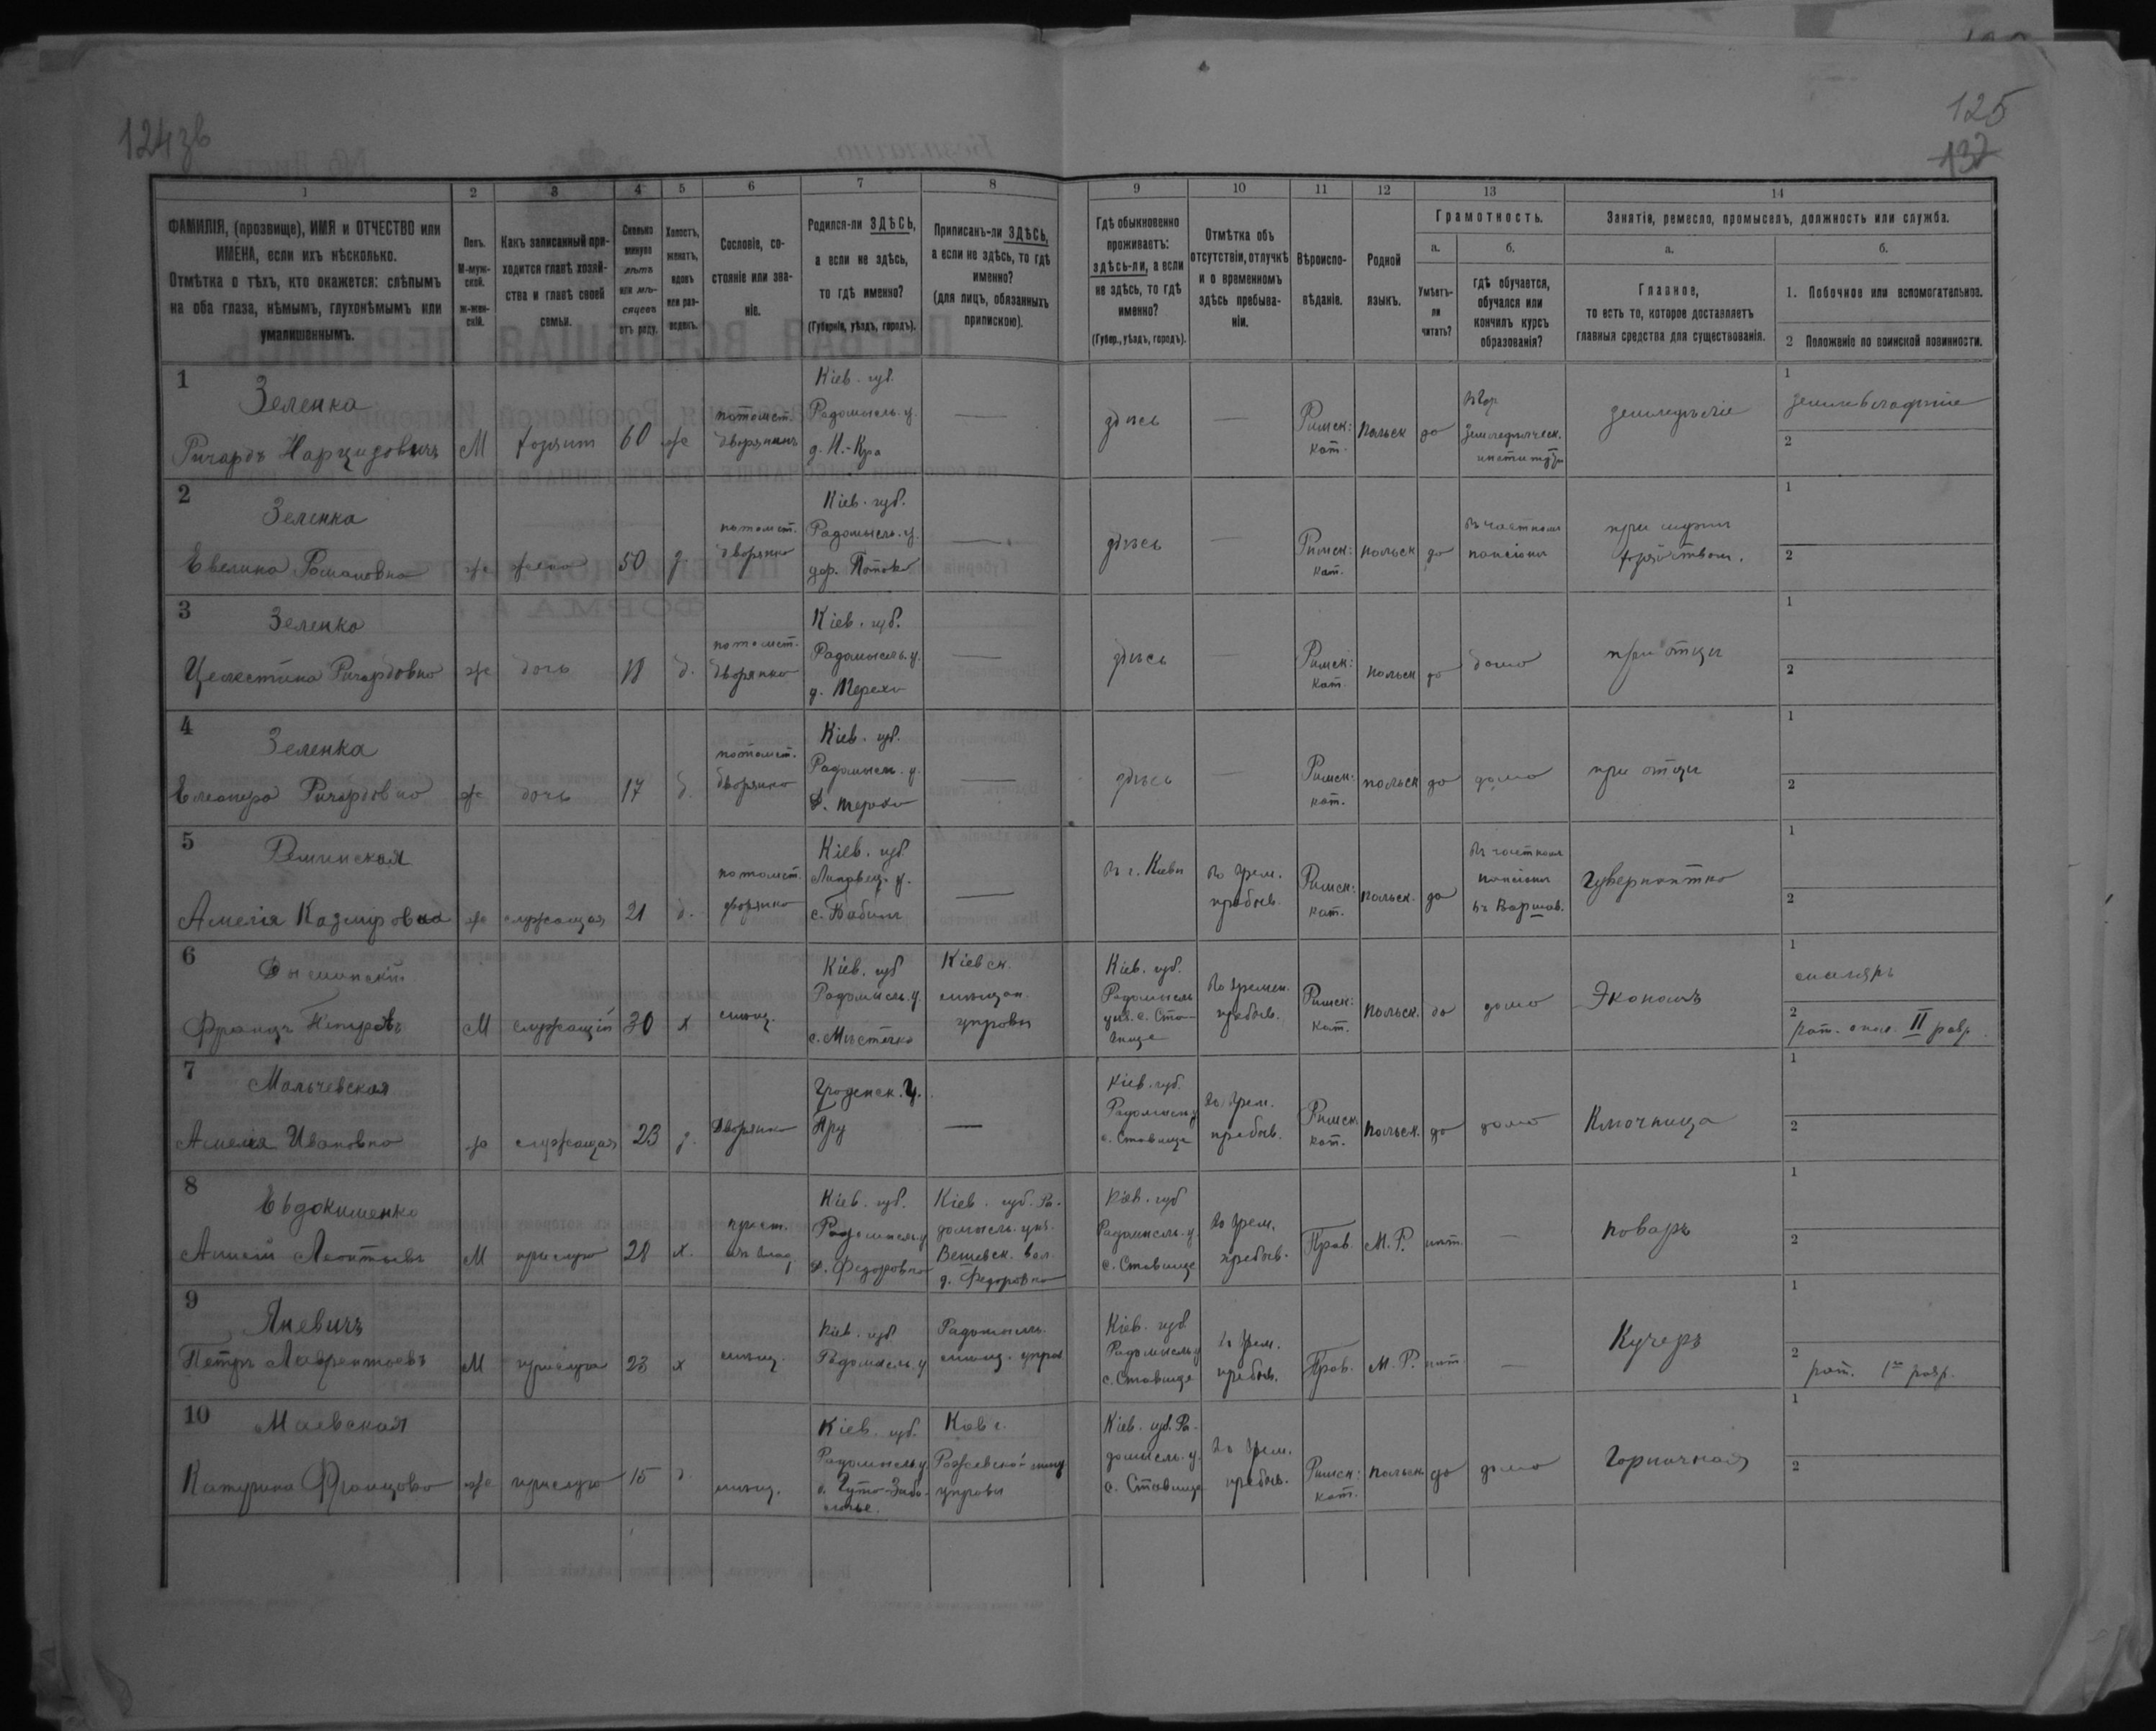 124 зв
125
132
1 2 3 4 5 6 7 8 9 10 11 12 13 14
ФАМИЛІЯ, (прозвище), ИМЯ и ОТЧЕСТВО или
ИМЕНА, если ихъ нѣсколько.
Отмѣтка о тѣхъ, кто окажется: слѣпымъ
на оба глаза, нѣмымъ, глухонѣмымъ или
умалишеннымъ.
Полъ.
М-муж-
ской.
ж-жен-
скій.
Какъ записанный при-
ходится главѣ хозяй-
ства и главѣ своей
семьи.
Сколько
минуло
лѣтъ
или мѣ-
сяцевъ
отъ роду.
Холостъ,
женатъ,
вдовъ
или раз-
веденъ.
Сословіе, со-
стояніе или зва-
ніе.
Родился-ли ЗДѢСЬ,
а если не здѣсь,
то гдѣ именно?
(Губернія, уѣздъ, городъ).
Приписанъ-ли ЗДѢСЬ,
а если не здѣсь, то гдѣ
именно?
(для лицъ, обязанныхъ
припискою).
Гдѣ обыкновенно
проживаетъ:
здѣсь-ли, а если
не здѣсь, то гдѣ
именно?
(Губер., уѣздъ, городъ).
Отмѣтка объ
отсутствіи, отлучкѣ
и о временномъ
здѣсь пребыва-
ніи.
Вѣроиспо-
вѣданіе.
Родной
языкъ.
Грамотность.
а.
Умѣетъ-
ли
читать?
б.
гдѣ обучается,
обучался или
кончилъ курсъ
образованія?
Занятія, ремесло, промыселъ, должность или служба.
а.
Главное,
то есть то, которое доставляетъ
главныя средства для существованія.
б.
1. Побочное или вспомогательное.
2 Положеніе по воинской повинности.
1
Зеленка
Ричардъ Нарцизовичъ
М
хозяин
60
ж
потомст.
дворянинъ
Кіев. губ.
Радомысль. у.
—
здѣсь
—
Римск:
кат.
польск
да
Земледѣльческ.
институтѣ
земледѣліе
1
землевладѣніе
2
2
Зеленка
Евелина Романовна
ж
жена
50
з.
потомст.
дворянка
Кіев. губ.
Радомысль. у.
—
здѣсь
—
Римск:
кат.
польск
да
въ частномъ
пансіонѣ
при мужѣ
хозяйством.
1
2
3
Зеленка
Целестина Ричардовна
ж
дочь
18
д.
потомст.
дворянка
Кіев. губ.
Радомысль. у.
д. Терехи
—
здѣсь
—
Римск:
кат.
польск
да
дома
при отцѣ
1
2
4
Зеленка
Елеанора Ричардовна
ж
дочь
17
д.
потомст.
дворянка
Кіев. губ.
Радомысль. у.
д. Терехи
—
здѣсь
—
Римск:
кат.
польск
да
дома
при отцѣ
1
2
5
Амелія Казміровна
ж
служащая
21
д.
потомст.
дворянка
Кіев. губ.
Липовец. у.
с. Бабин
—
въ г. Кіевѣ
во врем.
пребыв.
Римск:
кат.
польск.
да
въ частном
пансіонѣ
въ Варшав.
Гувернантка
1
2
6
Францъ Петровъ
М
служащій
30
х
мѣщ.
Кіев. губ
Радомысль. у.
с. Мѣстечко
Кіевск.
мѣщан.
управы
Кіев. губ.
Радомысль
уѣз. с. Ста-
вище
во времен.
пребыв.
Римск:
кат.
польск.
да
дома
Экономъ
1
2
рат. опол. II разр.
7
Мальчевская
Амелія Ивановна
ж
служащая
23
дворянка
Гродненск. у.
—
Кіев. губ.
Радомысль у
с. Ставище
во врем.
пребыв.
Римск.
кат.
польск.
да
дома
Ключница
1
2
8
Евдокименко
Алексѣй Леонтьевъ
М
прислуга
28
х.
Кіев. губ.
Радомысль у
д. Федоровка
Кіев. губ. Ра-
домысль. уѣз.
Вешевск. вол.
д. Федоровка
Кіев. губ
Радомысль. у
с. Ставище
во врем.
пребыв.
Прав.
М. Р.
нѣт.
—
поваръ
1
2
9
Яневичъ
Петръ Лаврентьевъ
М
прислуга
23
х
мѣщ.
Кіев. губ
Радомысль. у
Радомысль.
мѣщ. управ
Кіев. губ
Радомысль у
с. Ставище
во врем.
пребыв.
Прав.
М. Р.
нѣт
—
Кучеръ
1
2
рат. 1го разр.
10
Маевская
Катерина Францова
ж
прислуга
15
д
мѣщ.
Кіев. губ.
Радомысль у.
с. Гута-Забо-
лотье.
управы
Кіев. губ. Ра-
домысль. у.
с. Ставище
во врем.
пребыв.
Римск:
кат.
польск
да
дома
Горничная
1
2